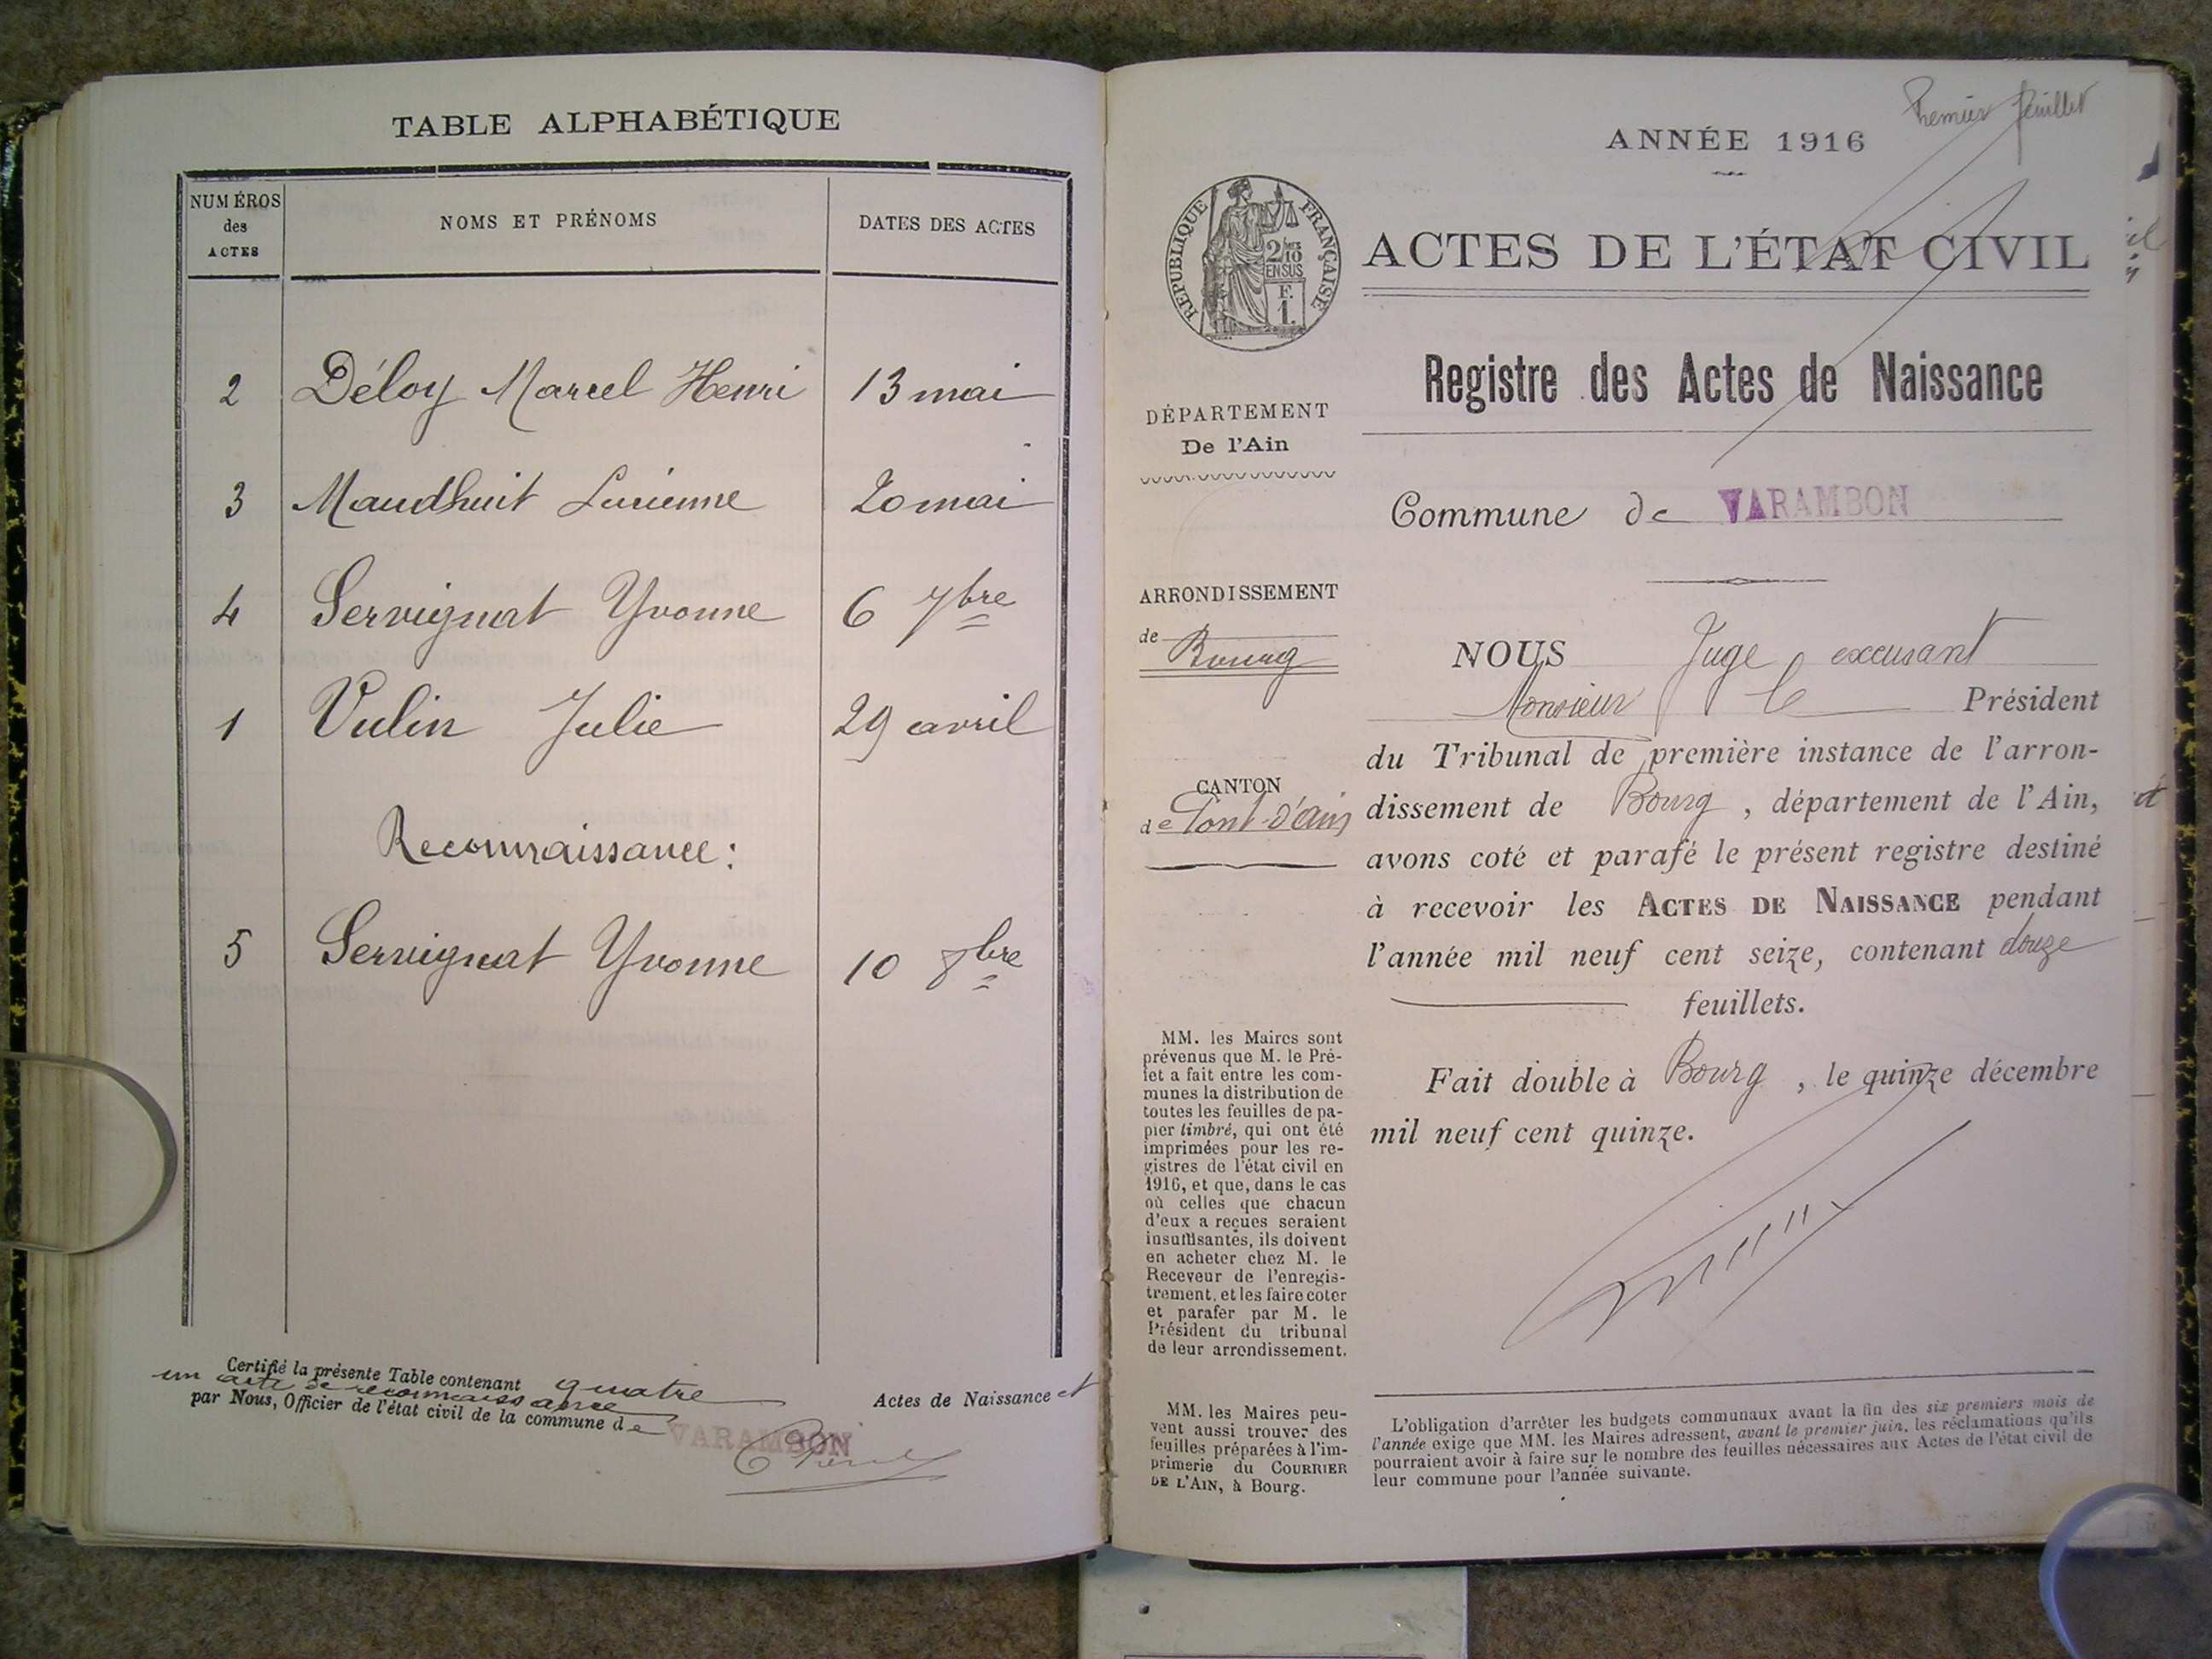 TABLE ALPHABÉTIQUE
NUMÉROS
des
ACTES
NOMS ET PRÉNOMS
DATES DES ACTES
2 Déloy Marcel Henri 13 mai
3 Maudhuit Lucienne 20 mai
4 Servignat Yvonne 6 7bre
1 Vulin Julie 29 avril
Reconnaissance :
5 Servignat Yvonne 10 8bre
Certifié la présente Table contenant quatre Actes de Naissance et
un acte de reconnaissance
par Nous, Officier de l'état civil de la commune de VARAMBON
Premier feuillet
ANNÉE 1916
RÉPUBLIQUE FRANÇAISE
2/10
EN SUS
F.
1.
ACTES DE L'ÉTAT CIVIL
Registre des Actes de Naissance
DÉPARTEMENT
De l'Ain
Commune de VARAMBON
ARRONDISSEMENT
de Bourg
CANTON
de Pont-d'Ain
NOUS Juge excusant
Monsieur le Président
du Tribunal de première instance de l'arron-
dissement de Bourg, département de l'Ain,
avons coté et parafé le présent registre destiné
à recevoir les ACTES DE NAISSANCE pendant
l'année mil neuf cent seize, contenant douze
feuillets.
Fait double à Bourg, le quinze décembre
mil neuf cent quinze.
MM. les Maires sont
prévenus que M. le Pré-
fet a fait entre les com-
munes la distribution de
toutes les feuilles de pa-
pier timbré, qui ont été
imprimées pour les re-
gistres de l'état civil en
1916, et que, dans le cas
où celles que chacun
d'eux a reçues seraient
insuffisantes, ils doivent
en acheter chez M. le
Receveur de l'enregis-
trement, et les faire coter
et parafer par M. le
Président du tribunal
de leur arrondissement.
MM. les Maires peu-
vent aussi trouver des
feuilles préparées à l'im-
primerie du COURRIER
DE L'AIN, à Bourg.
L'obligation d'arrêter les budgets communaux avant la fin des six premiers mois de
l'année exige que MM. les Maires adressent, avant le premier juin, les réclamations qu'ils
pourraient avoir à faire sur le nombre des feuilles nécessaires aux Actes de l'état civil de
leur commune pour l'année suivante.